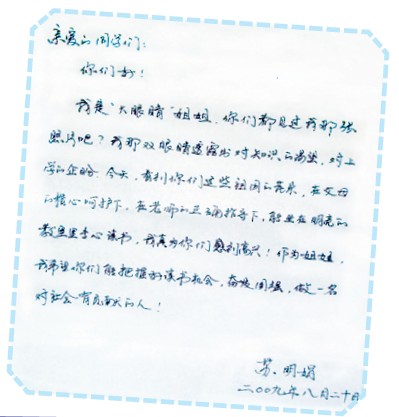 亲爱的同学们:
你们好!
我是“大眼睛”姐姐,你们都见过我那张
照片吧?我那双眼睛透露出对知识的渴望,对上
学的企盼。今天,看到你们这些祖国的花朵,在父母
的精心呵护下,在老师的正确指导下,能坐在明亮的
教室里安心读书,我真为你们感到高兴!作为姐姐,
我希望你们能把握好读书机会,奋发图强,做一名
对社会有贡献的人!
苏明娟
二〇〇九年八月二十日